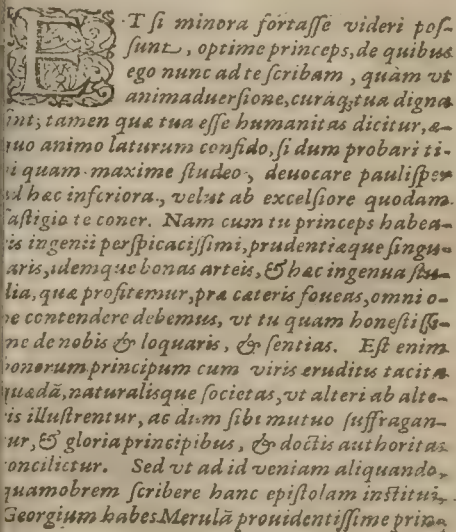 ET si minora fortasse videri pos-
sunt, optime princeps, de quibus
ego nunc ad te scribam, quàm vt
animaduersione, curaq; tua digna
int; tamen quæ tua esse humanitas dicitur, æ-
quo animo laturum confido, si dum probari ti-
i quam maxime studeo, deuocare paulisper
d hæc inferiora, velut ab excelsiore quodam
astigio te coner. Nam cum tu princeps habea-
is ingenii perspicacissimi, prudentiæque singu-
aris, idemque bonas arteis, & hæc ingenua stu-
lia, quæ profitemur, præ cæteris foueas, omni o-
e contendere debemus, vt tu quam honestiss-
me de nobis & loquaris, & sentias. Est enim
onorum principum cum viris eruditis tacita
quædā, naturalisque societas, vt alteri ab alte-
is illustrentur, ac dum sibi mutuo suffragan-
ur, & gloria principibus, & doctis authoritas
oncilietur. Sed vt ad id veniam aliquando,
quamobrem scribere hanc epistolam institui,
Georgium habes Merulā prouidentissime prin-